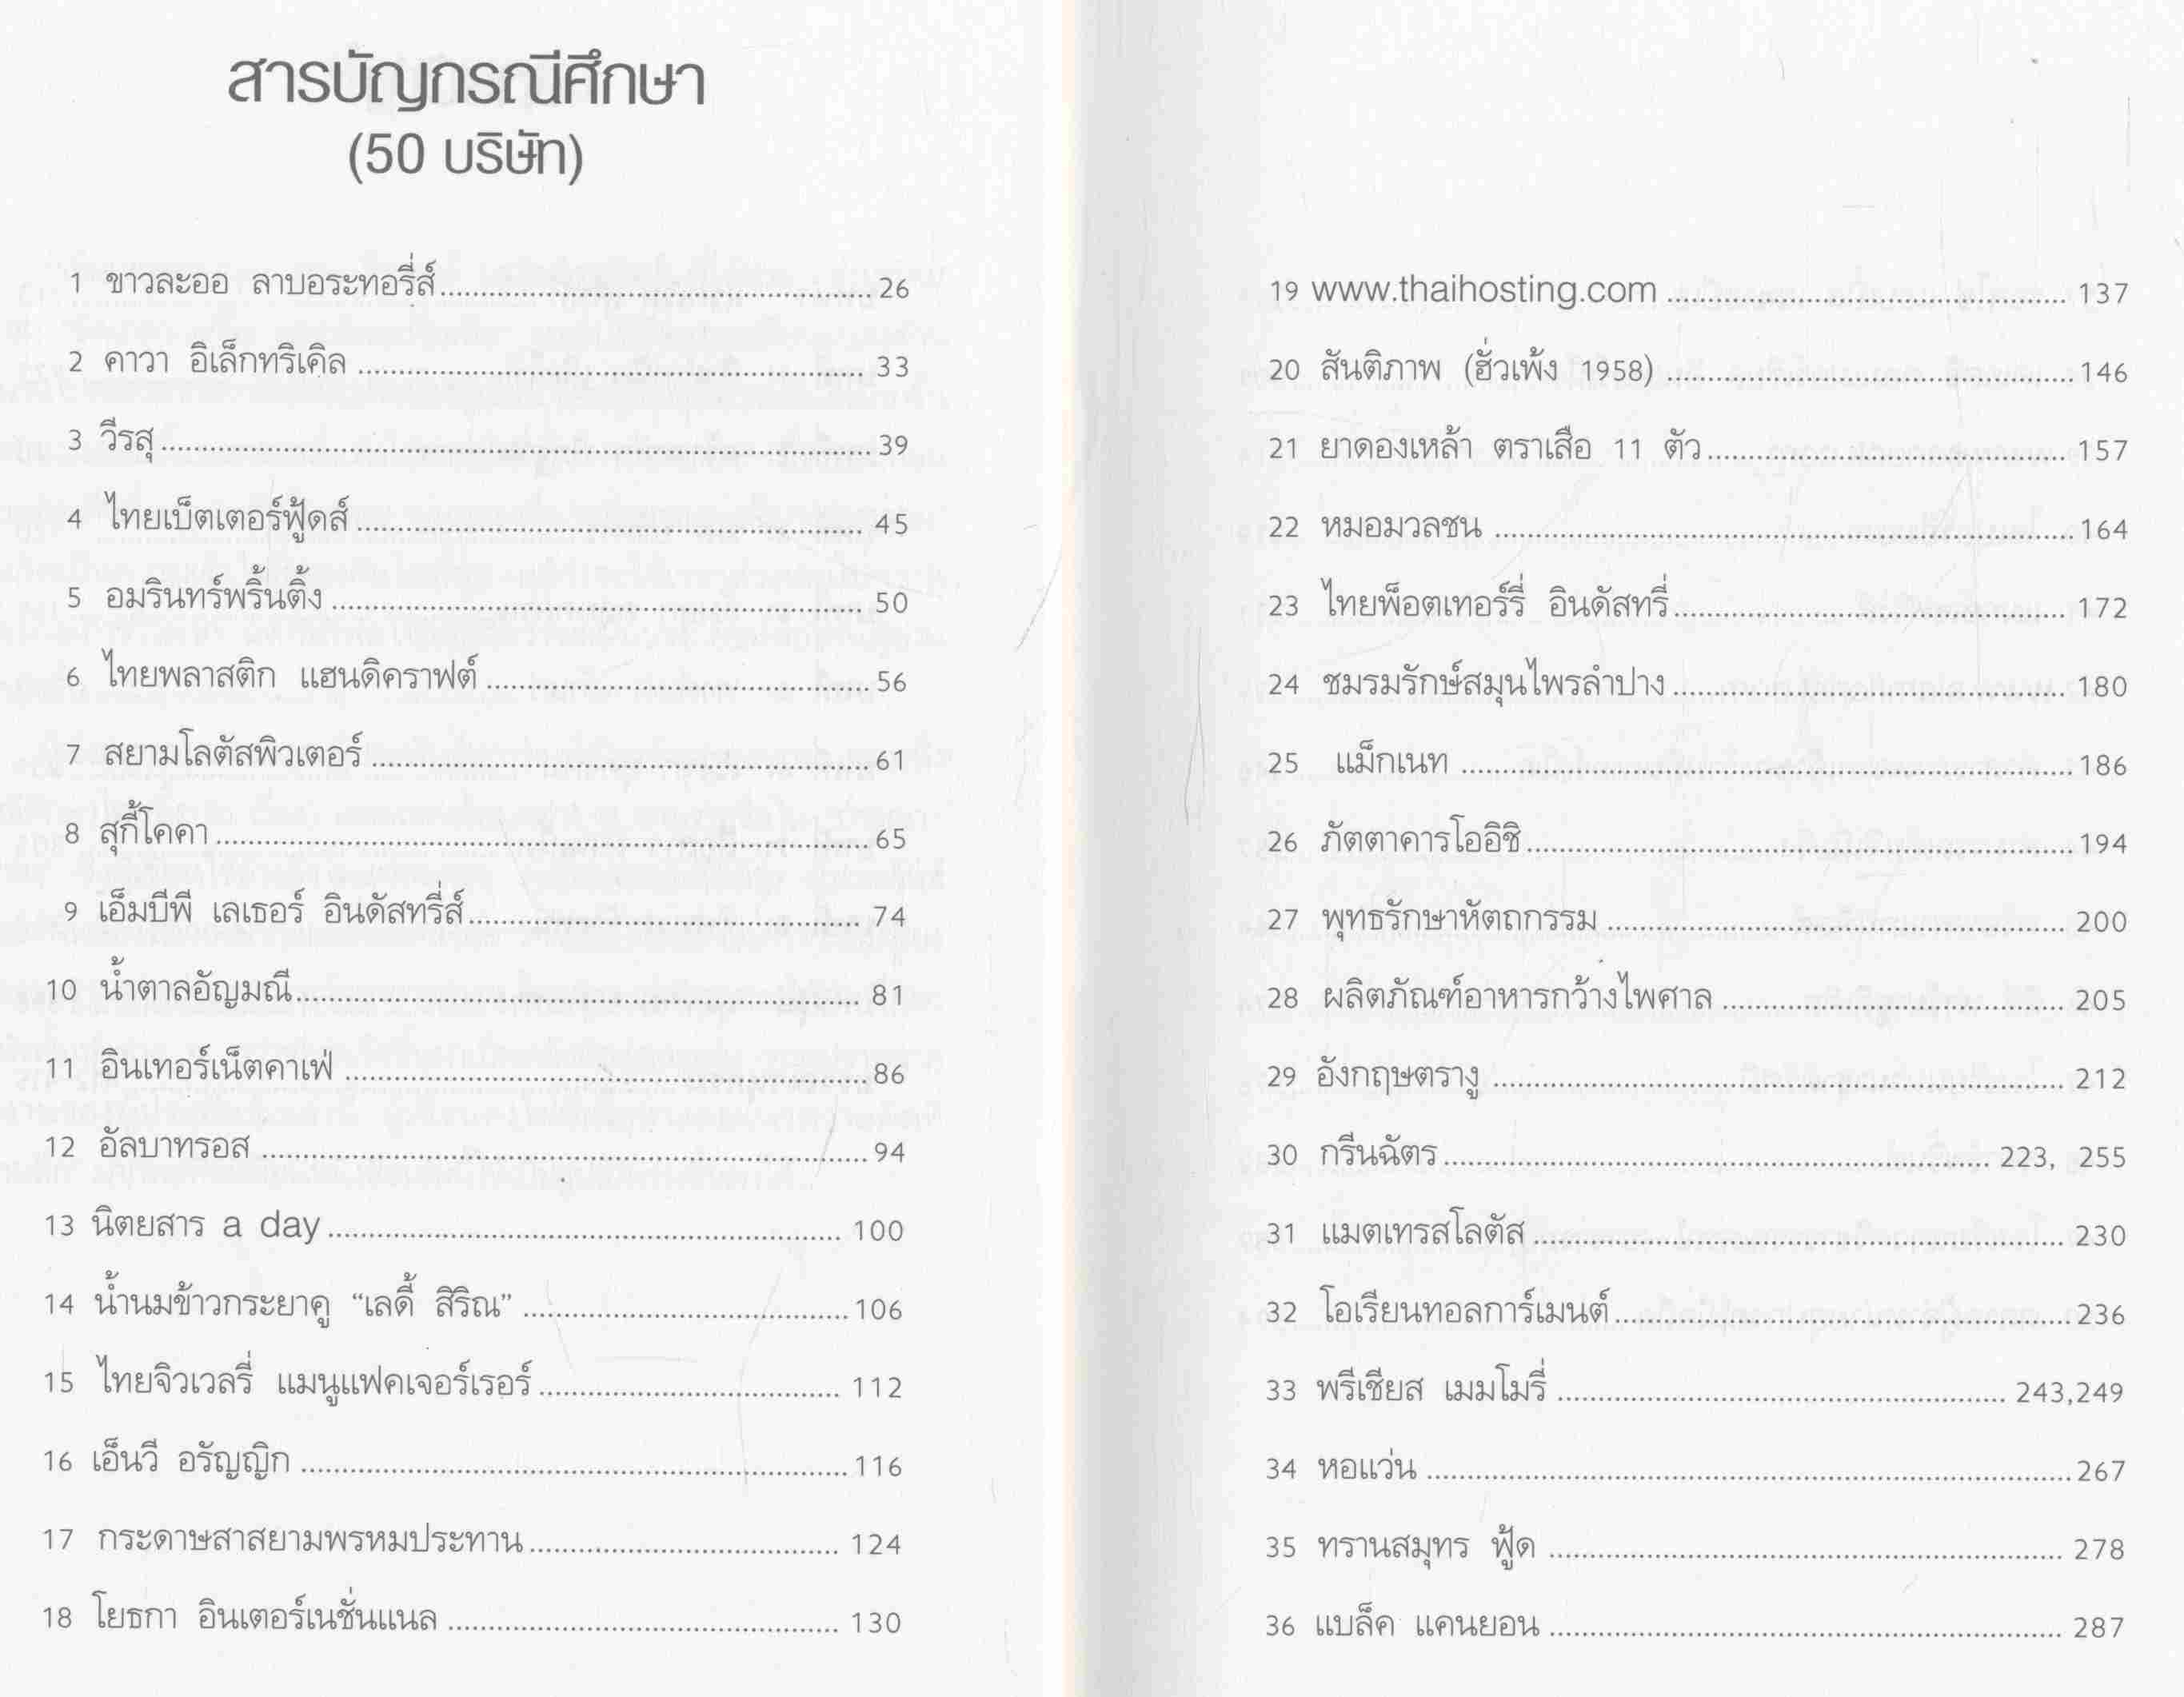 สารบัญกรณีศึกษา
(50 บริษัท)
1 ขาวละออ ลาบอระทอรี่ส์ 26
2 คาวา อิเล็กทริเคิล 33
3 วีรสุ 39
4 ไทยเบ็ตเตอร์ฟู้ดส์ 45
5 อมรินทร์พริ้นติ้ง 50
6 ไทยพลาสติก แฮนดิคราฟต์ 56
7 สยามโลตัสพิวเตอร์ 61
8 สุกี้โคคา 65
9 เอ็มบีพี เลเธอร์ อินดัสทรี่ส์ 74
10 น้ำตาลอัญมณี 81
11 อินเทอร์เน็ตคาเฟ่ 86
12 อัลบาทรอส 94
13 นิตยสาร a day 100
14 น้ำนมข้าวกระยาคู “เลดี้ สิริณ” 106
15 ไทยจิวเวลรี่ แมนูแฟคเจอร์เรอร์ 112
16 เอ็นวี อรัญญิก 116
17 กระดาษสาสยามพรหมประทาน 124
18 โยธกา อินเตอร์เนชั่นแนล 130
19 www.thaihosting.com 137
20 สันติภาพ (ฮั่วเพ้ง 1958) 146
21 ยาดองเหล้า ตราเสือ 11 ตัว 157
22 หมอมวลชน 164
23 ไทยพ็อตเทอร์รี่ อินดัสทรี่ 172
24 ชมรมรักษ์สมุนไพรลำปาง 180
25 แม็กเนท 186
26 ภัตตาคารโออิชิ 194
27 พุทธรักษาหัตถกรรม 200
28 ผลิตภัณฑ์อาหารกว้างไพศาล 205
29 อังกฤษตรางู 212
30 กรีนฉัตร 223, 255
31 แมตเทรสโลตัส 230
32 โอเรียนทอลการ์เมนต์ 236
33 พรีเชียส เมมโมรี่ 243,249
34 หอแว่น 267
35 ทรานสมุทร ฟู้ด 278
36 แบล็ค แคนยอน 287